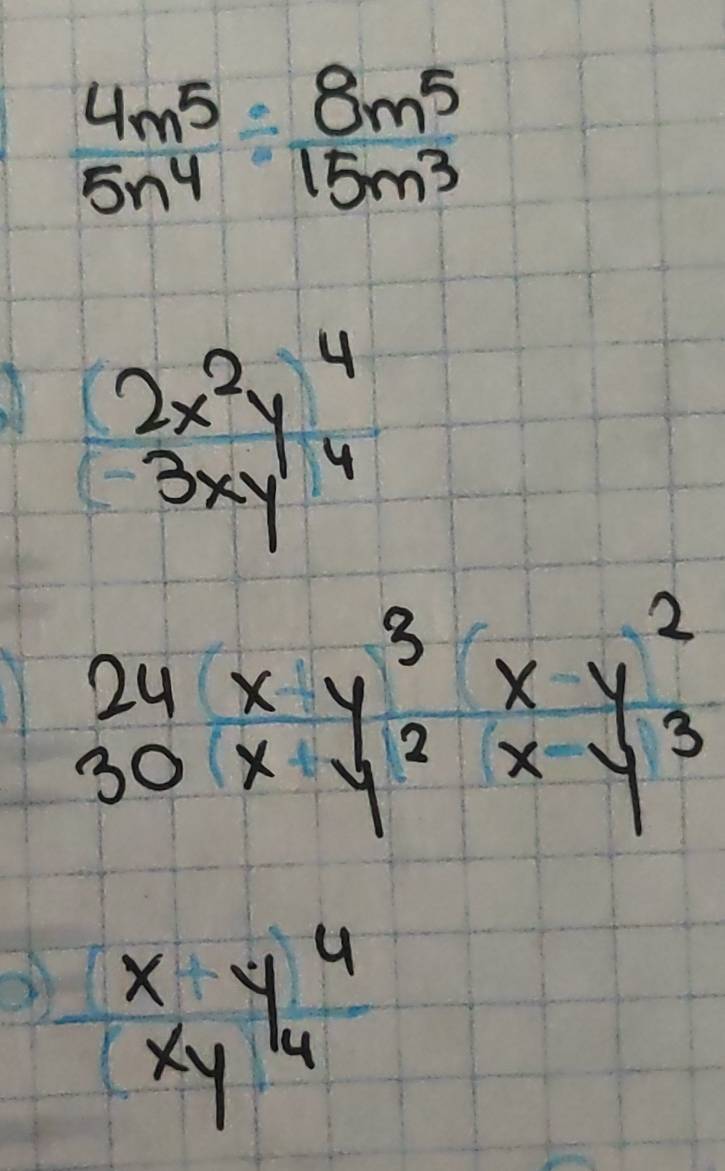 4m⁵/5n⁴ ÷ 8m⁵/15m³
(2x²y)⁴/(-3xy)⁴
24(x+y)³(x-y)²/30(x+y)²(x-y)³
(x+y)⁴/(xy)⁴